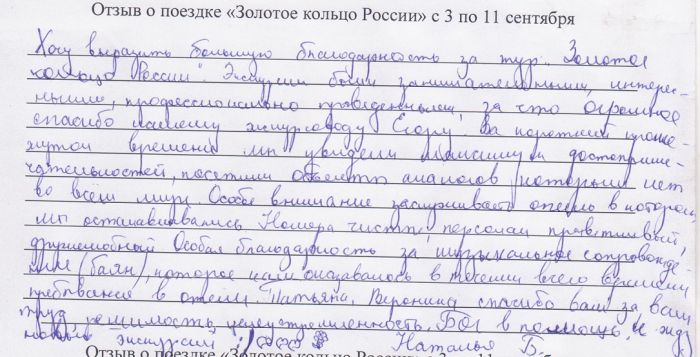 Отзыв о поездке «Золотое кольцо России» с 3 по 11 сентября
Хочу выразить большую благодарность за тур „Золотое
кольцо России". Экскурсии были занимательными, интерес-
ными, профессионально проведенными, за что огромное
спасибо нашему экскурсоводу Егору. За короткий проме-
жуток времени мы увидели достоприме-
чательностей, посетили объекты аналогов которым нет
во всём мире. Особое внимание заслуживает отель в котором
мы останавливались. Номера чистые, персонал приветливый,
дружелюбный. Особая благодарность за музыкальное сопровожде-
ние (баян), которое нам оказывалось в течении всего времени
пребывания в отеле. Татьяна, Вероника спасибо вам за ваш
труд, решимость, целеустремленность. Бог в помощь, и жду
новых экскурсий! Наталья Б.
Отзыв о поездке «Золотое кольцо России» с 3 по 11 се